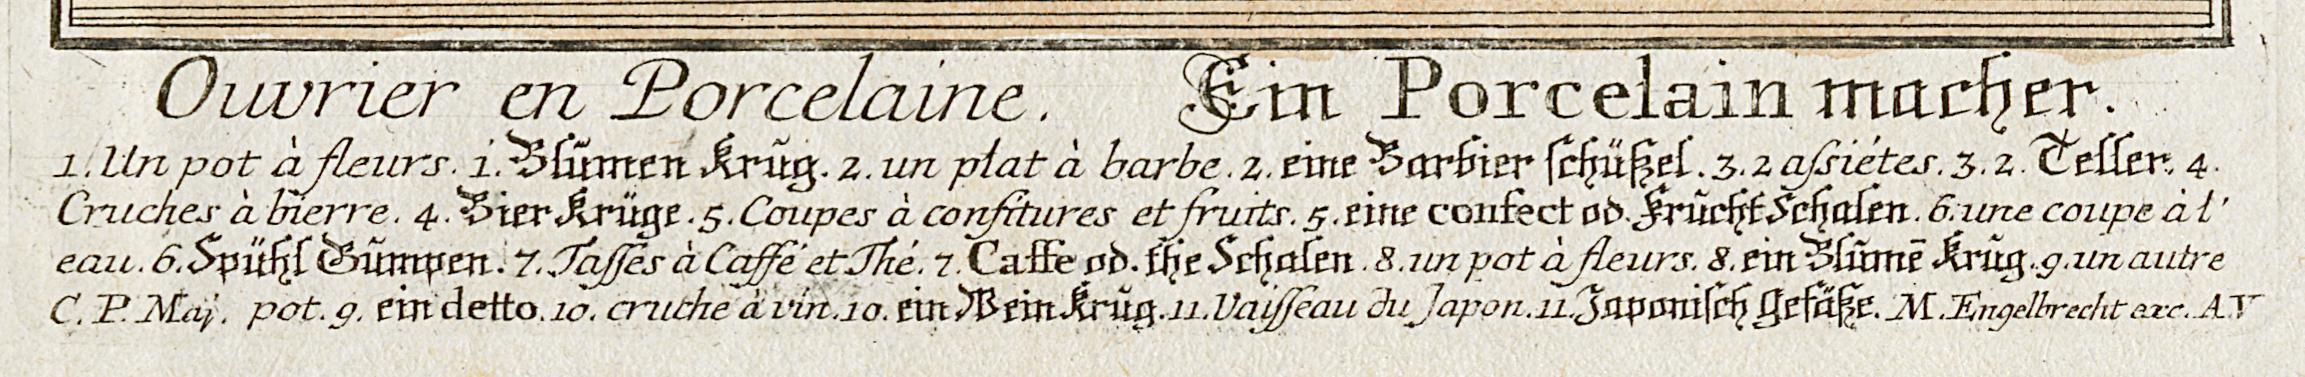 Ouvrier en Porcelaine. Ein Porcelain macher.
1. Un pot à fleurs. 1. Blũmen Krũg. 2. un plat à barbe. 2. eine Barbier schüßel. 3. 2 aſsiétes. 3. 2. Teller. 4.
Cruches à bierre. 4. Bier Krüge. 5. Coupes à confitures et fruits. 5. eine confect od. Frũcht Schalen. 6. une coupe à l'
eau. 6. Spühl Gũmpen. 7. Taſſes à Caffé et Thé. 7. Caffe od. the Schalen. 8. un pot à fleurs. 8. ein Blũmē Krũg. 9. un autre
C. P. Maj. pot. 9. ein detto. 10. cruche à vin. 10. ein Wein Krũg. 11. Vaiſſeau du Japon. 11. Japoniſch Gefäße. M. Engelbrecht exc. A.V